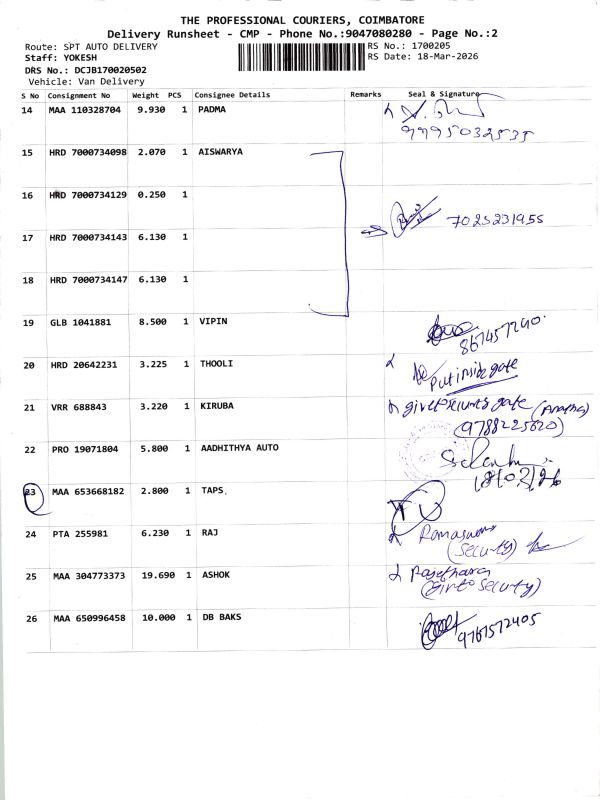 THE PROFESSIONAL COURIERS, COIMBATORE
Delivery Runsheet - CMP - Phone No.:9047080280 - Page No.:2
Route: SPT AUTO DELIVERY
RS No.: 1700205
Staff: YOKESH
RS Date: 18-Mar-2026
DRS No.: DCJB170020502
Vehicle: Van Delivery
S No Consignment No Weight PCS Consignee Details Remarks Seal & Signature
14 MAA 110328704 9.930 1 PADMA
9995032535
15 HRD 7000734098 2.070 1 AISWARYA
16 HRD 7000734129 0.250 1
7025231955
17 HRD 7000734143 6.130 1
18 HRD 7000734147 6.130 1
19 GLB 1041881 8.500 1 VIPIN
20 HRD 20642231 3.225 1 THOOLI
Put inside gate
21 VRR 688843 3.220 1 KIRUBA
gate
(9788225620)
22 PRO 19071804 5.800 1 AADHITHYA AUTO
23 MAA 653668182 2.800 1 TAPS.
24 PTA 255981 6.230 1 RAJ
(Security)
25 MAA 304773373 19.690 1 ASHOK
26 MAA 650996458 10.000 1 DB BAKS
9767572405